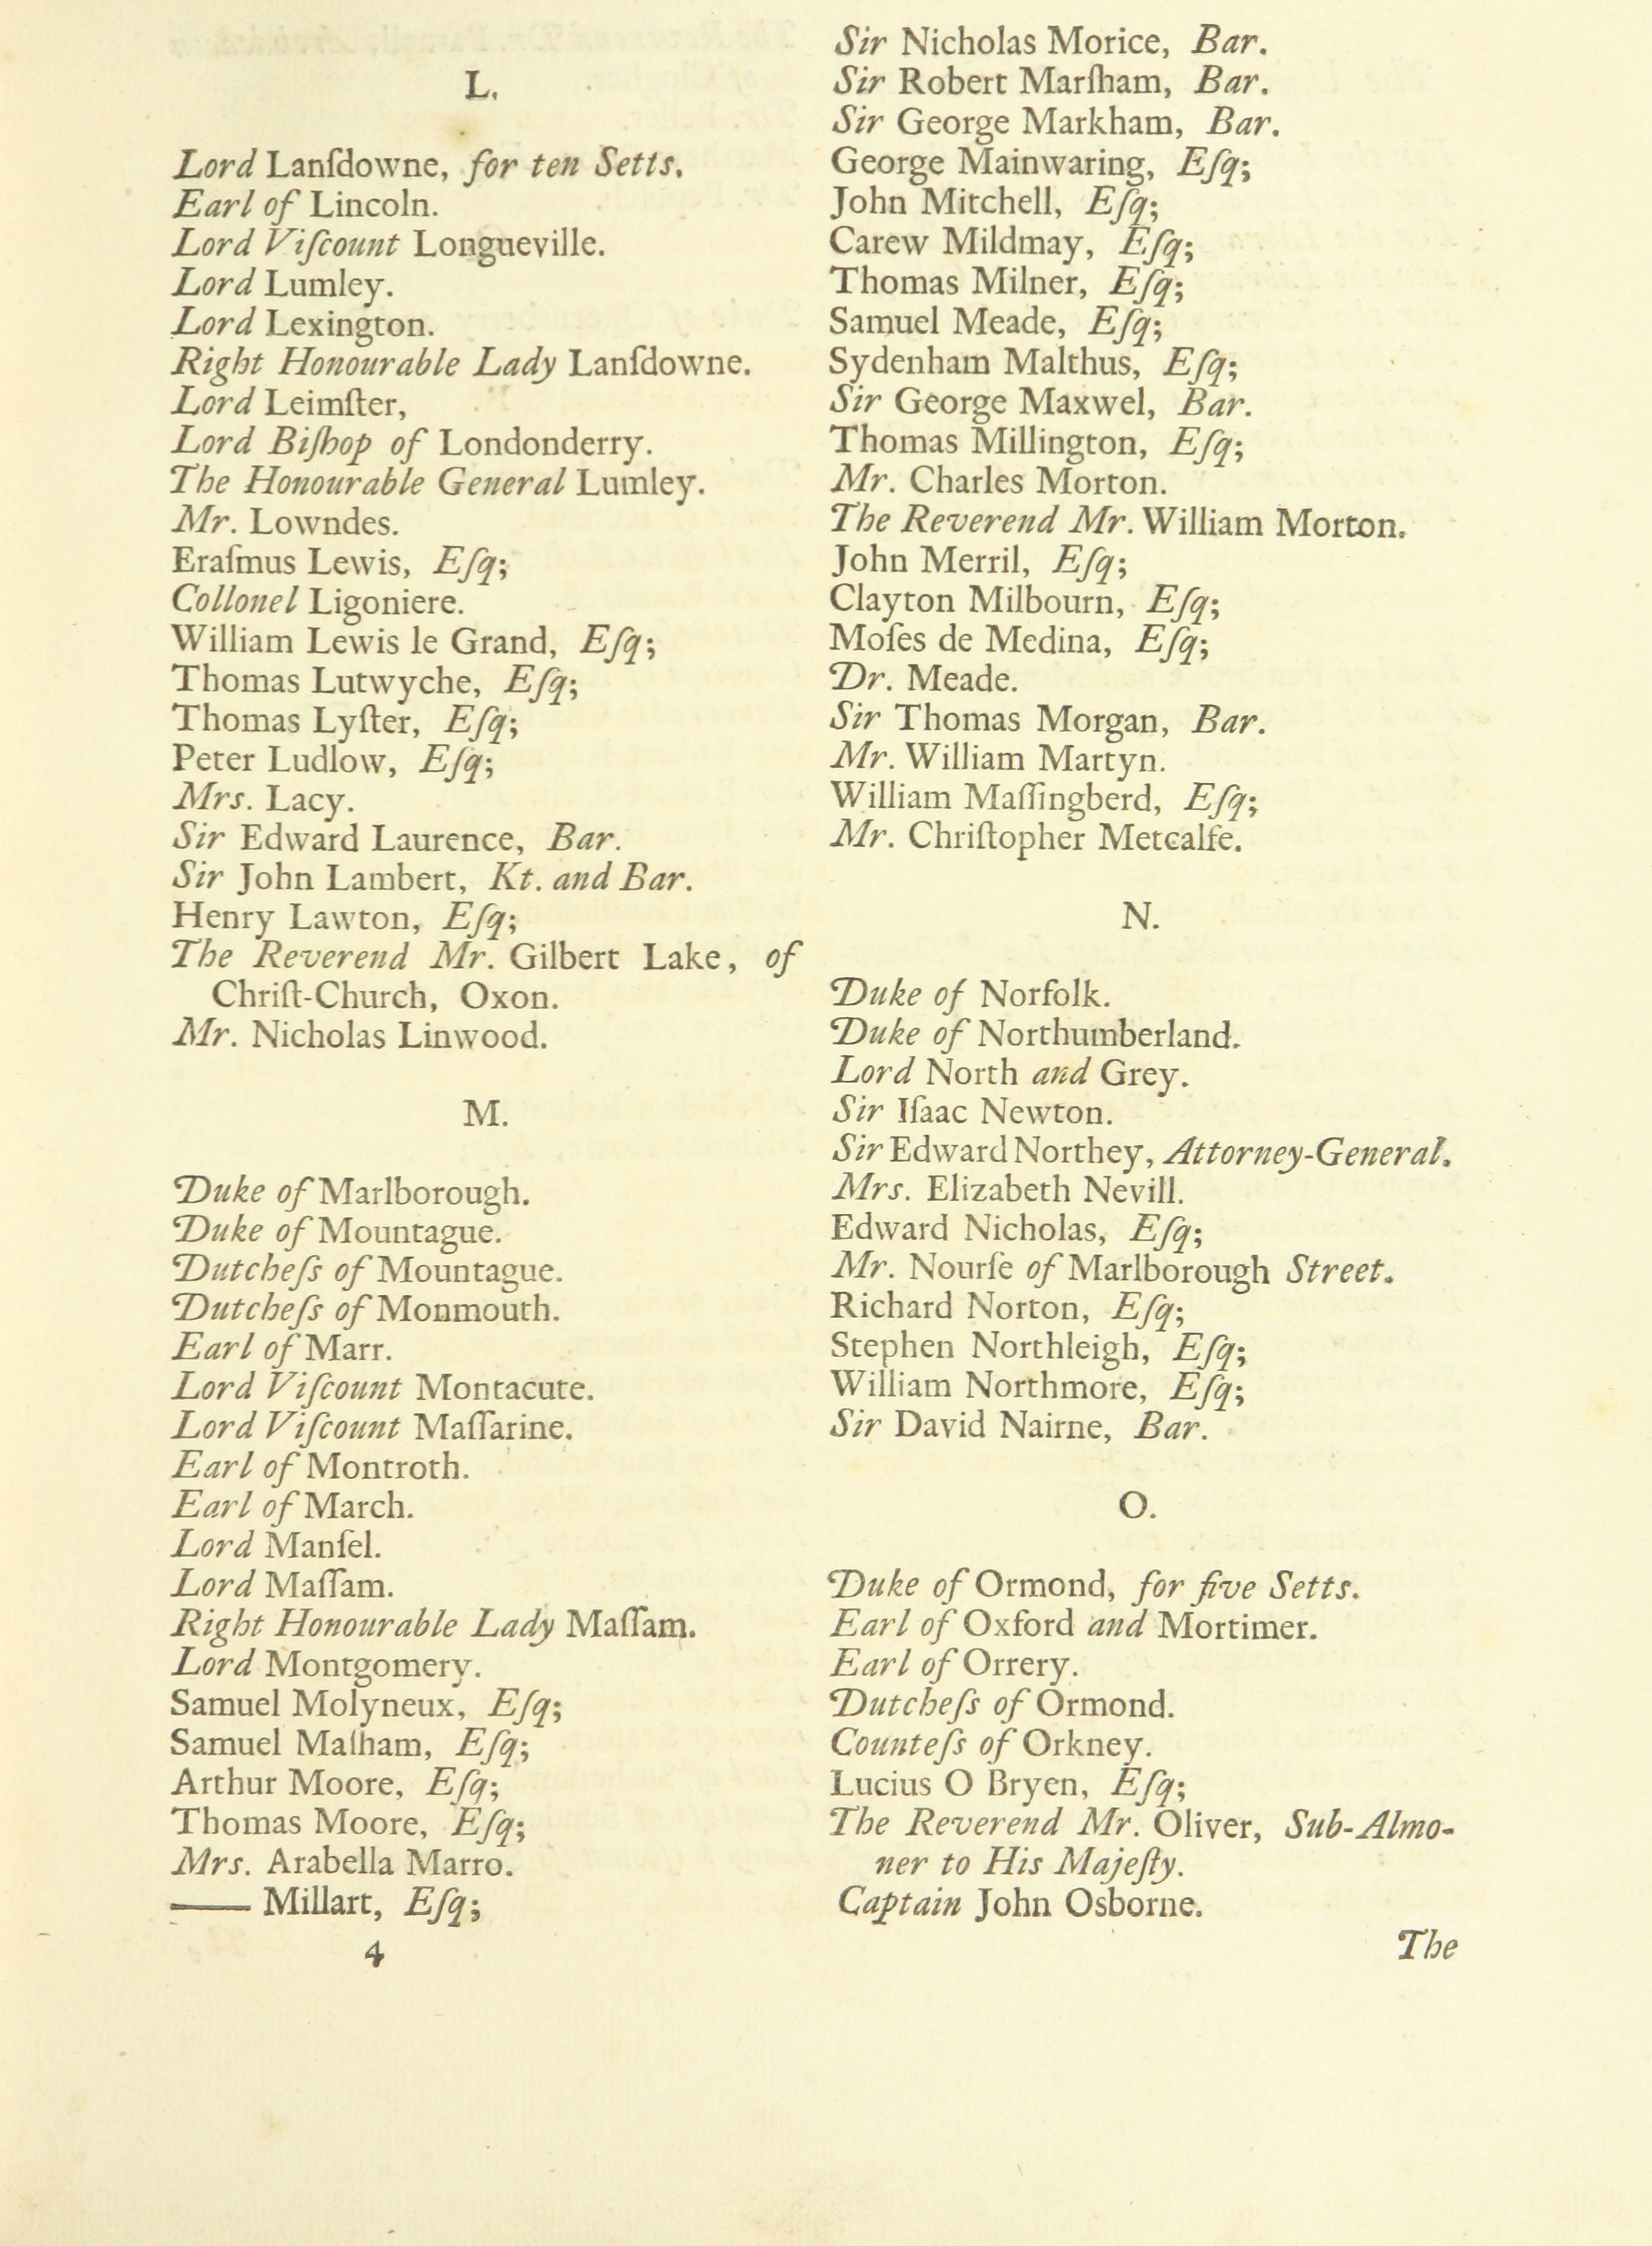 L.
Lord Lanſdowne, for ten Setts.
Earl of Lincoln.
Lord Viſcount Longueville.
Lord Lumley.
Lord Lexington.
Right Honourable Lady Lanſdowne.
Lord Leimſter,
Lord Biſhop of Londonderry.
The Honourable General Lumley.
Mr. Lowndes.
Eraſmus Lewis, Eſq;
Collonel Ligoniere.
William Lewis le Grand, Eſq;
Thomas Lutwyche, Eſq;
Thomas Lyſter, Eſq;
Peter Ludlow, Eſq;
Mrs. Lacy.
Sir Edward Laurence, Bar.
Sir John Lambert, Kt. and Bar.
Henry Lawton, Eſq;
The Reverend Mr. Gilbert Lake, of
Chriſt-Church, Oxon.
Mr. Nicholas Linwood.
M.
Duke of Marlborough.
Duke of Mountague.
Dutcheſs of Mountague.
Dutcheſs of Monmouth.
Earl of Marr.
Lord Viſcount Montacute.
Lord Viſcount Maſſarine.
Earl of Montroth.
Earl of March.
Lord Manſel.
Lord Maſſam.
Right Honourable Lady Maſſam.
Lord Montgomery.
Samuel Molyneux, Eſq;
Samuel Maſham, Eſq;
Arthur Moore, Eſq;
Thomas Moore, Eſq;
Mrs. Arabella Marro.
—— Millart, Eſq;
4
Sir Nicholas Morice, Bar.
Sir Robert Marſham, Bar.
Sir George Markham, Bar.
George Mainwaring, Eſq;
John Mitchell, Eſq;
Carew Mildmay, Eſq;
Thomas Milner, Eſq;
Samuel Meade, Eſq;
Sydenham Malthus, Eſq;
Sir George Maxwel, Bar.
Thomas Millington, Eſq;
Mr. Charles Morton.
The Reverend Mr. William Morton.
John Merril, Eſq;
Clayton Milbourn, Eſq;
Moſes de Medina, Eſq;
Dr. Meade.
Sir Thomas Morgan, Bar.
Mr. William Martyn.
William Maſſingberd, Eſq;
Mr. Chriſtopher Metcalfe.
N.
Duke of Norfolk.
Duke of Northumberland.
Lord North and Grey.
Sir Iſaac Newton.
Sir Edward Northey, Attorney-General.
Mrs. Elizabeth Nevill.
Edward Nicholas, Eſq;
Mr. Nourſe of Marlborough Street.
Richard Norton, Eſq;
Stephen Northleigh, Eſq;
William Northmore, Eſq;
Sir David Nairne, Bar.
O.
Duke of Ormond, for five Setts.
Earl of Oxford and Mortimer.
Earl of Orrery.
Dutcheſs of Ormond.
Counteſs of Orkney.
Lucius O Bryen, Eſq;
The Reverend Mr. Oliver, Sub-Almo-
ner to His Majeſty.
Captain John Osborne.
The